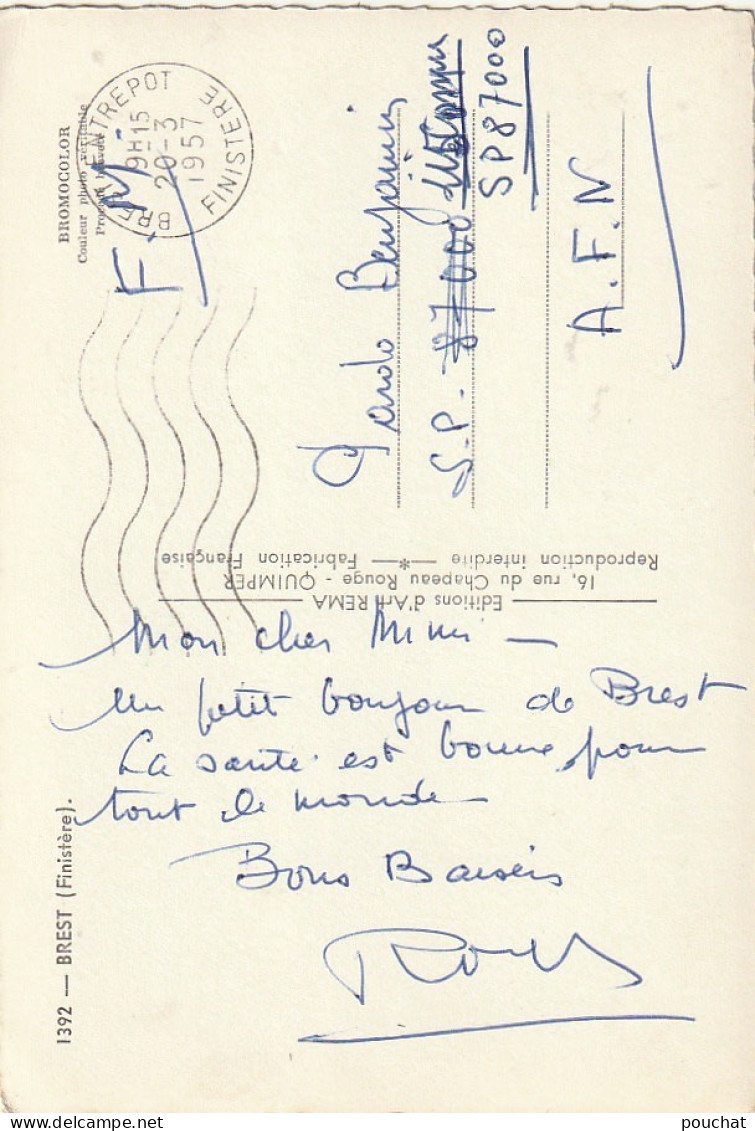 BROMOCOLOR
Couleur photo véritable
BREST ENTREPOT
9H15
20-3
1957
FINISTERE
F. M.
Benjamin
S.P. 87000
SP87000
A. F. N
Editions d'Art REMA
16, rue du Chapeau Rouge - QUIMPER
Reproduction interdite —*— Fabrication Française
Mon cher Mimi —
Un petit bonjour de Brest
La santé est bonne pour
tout le monde
Bons Baisers
1392 — BREST (Finistère).
pouchat